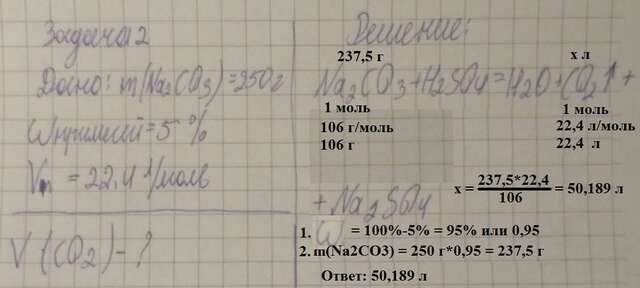 Задача 2
Дано: m(Na2CO3)=250г
ω примесей = 5%
Vm = 22,4 л/моль
V(CO2) - ?
Решение:
237,5 г х л
Na2CO3+H2SO4=H2O+CO2↑+
1 моль 1 моль
106 г/моль 22,4 л/моль
106 г 22,4 л
+ Na2SO4
х = 237,5*22,4 / 106 = 50,189 л
1. ω = 100%-5% = 95% или 0,95
2. m(Na2CO3) = 250 г*0,95 = 237,5 г
Ответ: 50,189 л